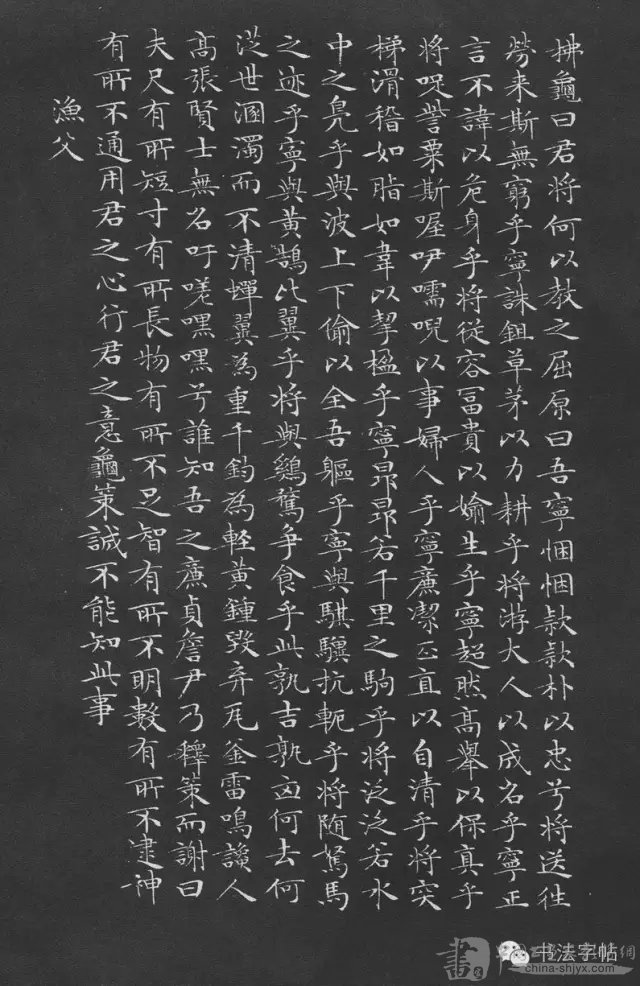 拂龜曰君將何以教之屈原曰吾寧悃悃款款朴以忠兮將送往
勞来斯無窮乎寧誅鉏草茅以力耕乎將游大人以成名乎寧正
言不諱以危身乎將從容冨貴以媮生乎寧超然高舉以保真乎
將哫訾粟斯喔吚嚅唲以事婦人乎寧廉潔正直以自清乎將突
梯滑稽如脂如韋以挈楹乎寧昂昂若千里之駒乎將泛泛若水
中之鳧乎與波上下偷以全吾軀乎寧與騏驥抗軛乎將随駑馬
之迹乎寧與黄鵠比翼乎將與鷄鶩争食乎此孰吉孰凶何去何
從世溷濁而不清蟬翼為重千鈞為輕黄鍾毀弃瓦釜雷鳴讒人
高張賢士無名吁嗟嘿嘿兮誰知吾之廉貞詹尹乃釋策而謝曰
夫尺有所短寸有所長物有所不足智有所不明數有所不逮神
有所不通用君之心行君之意龜策誠不能知此事
漁父
书法字帖
china-shjyx.com